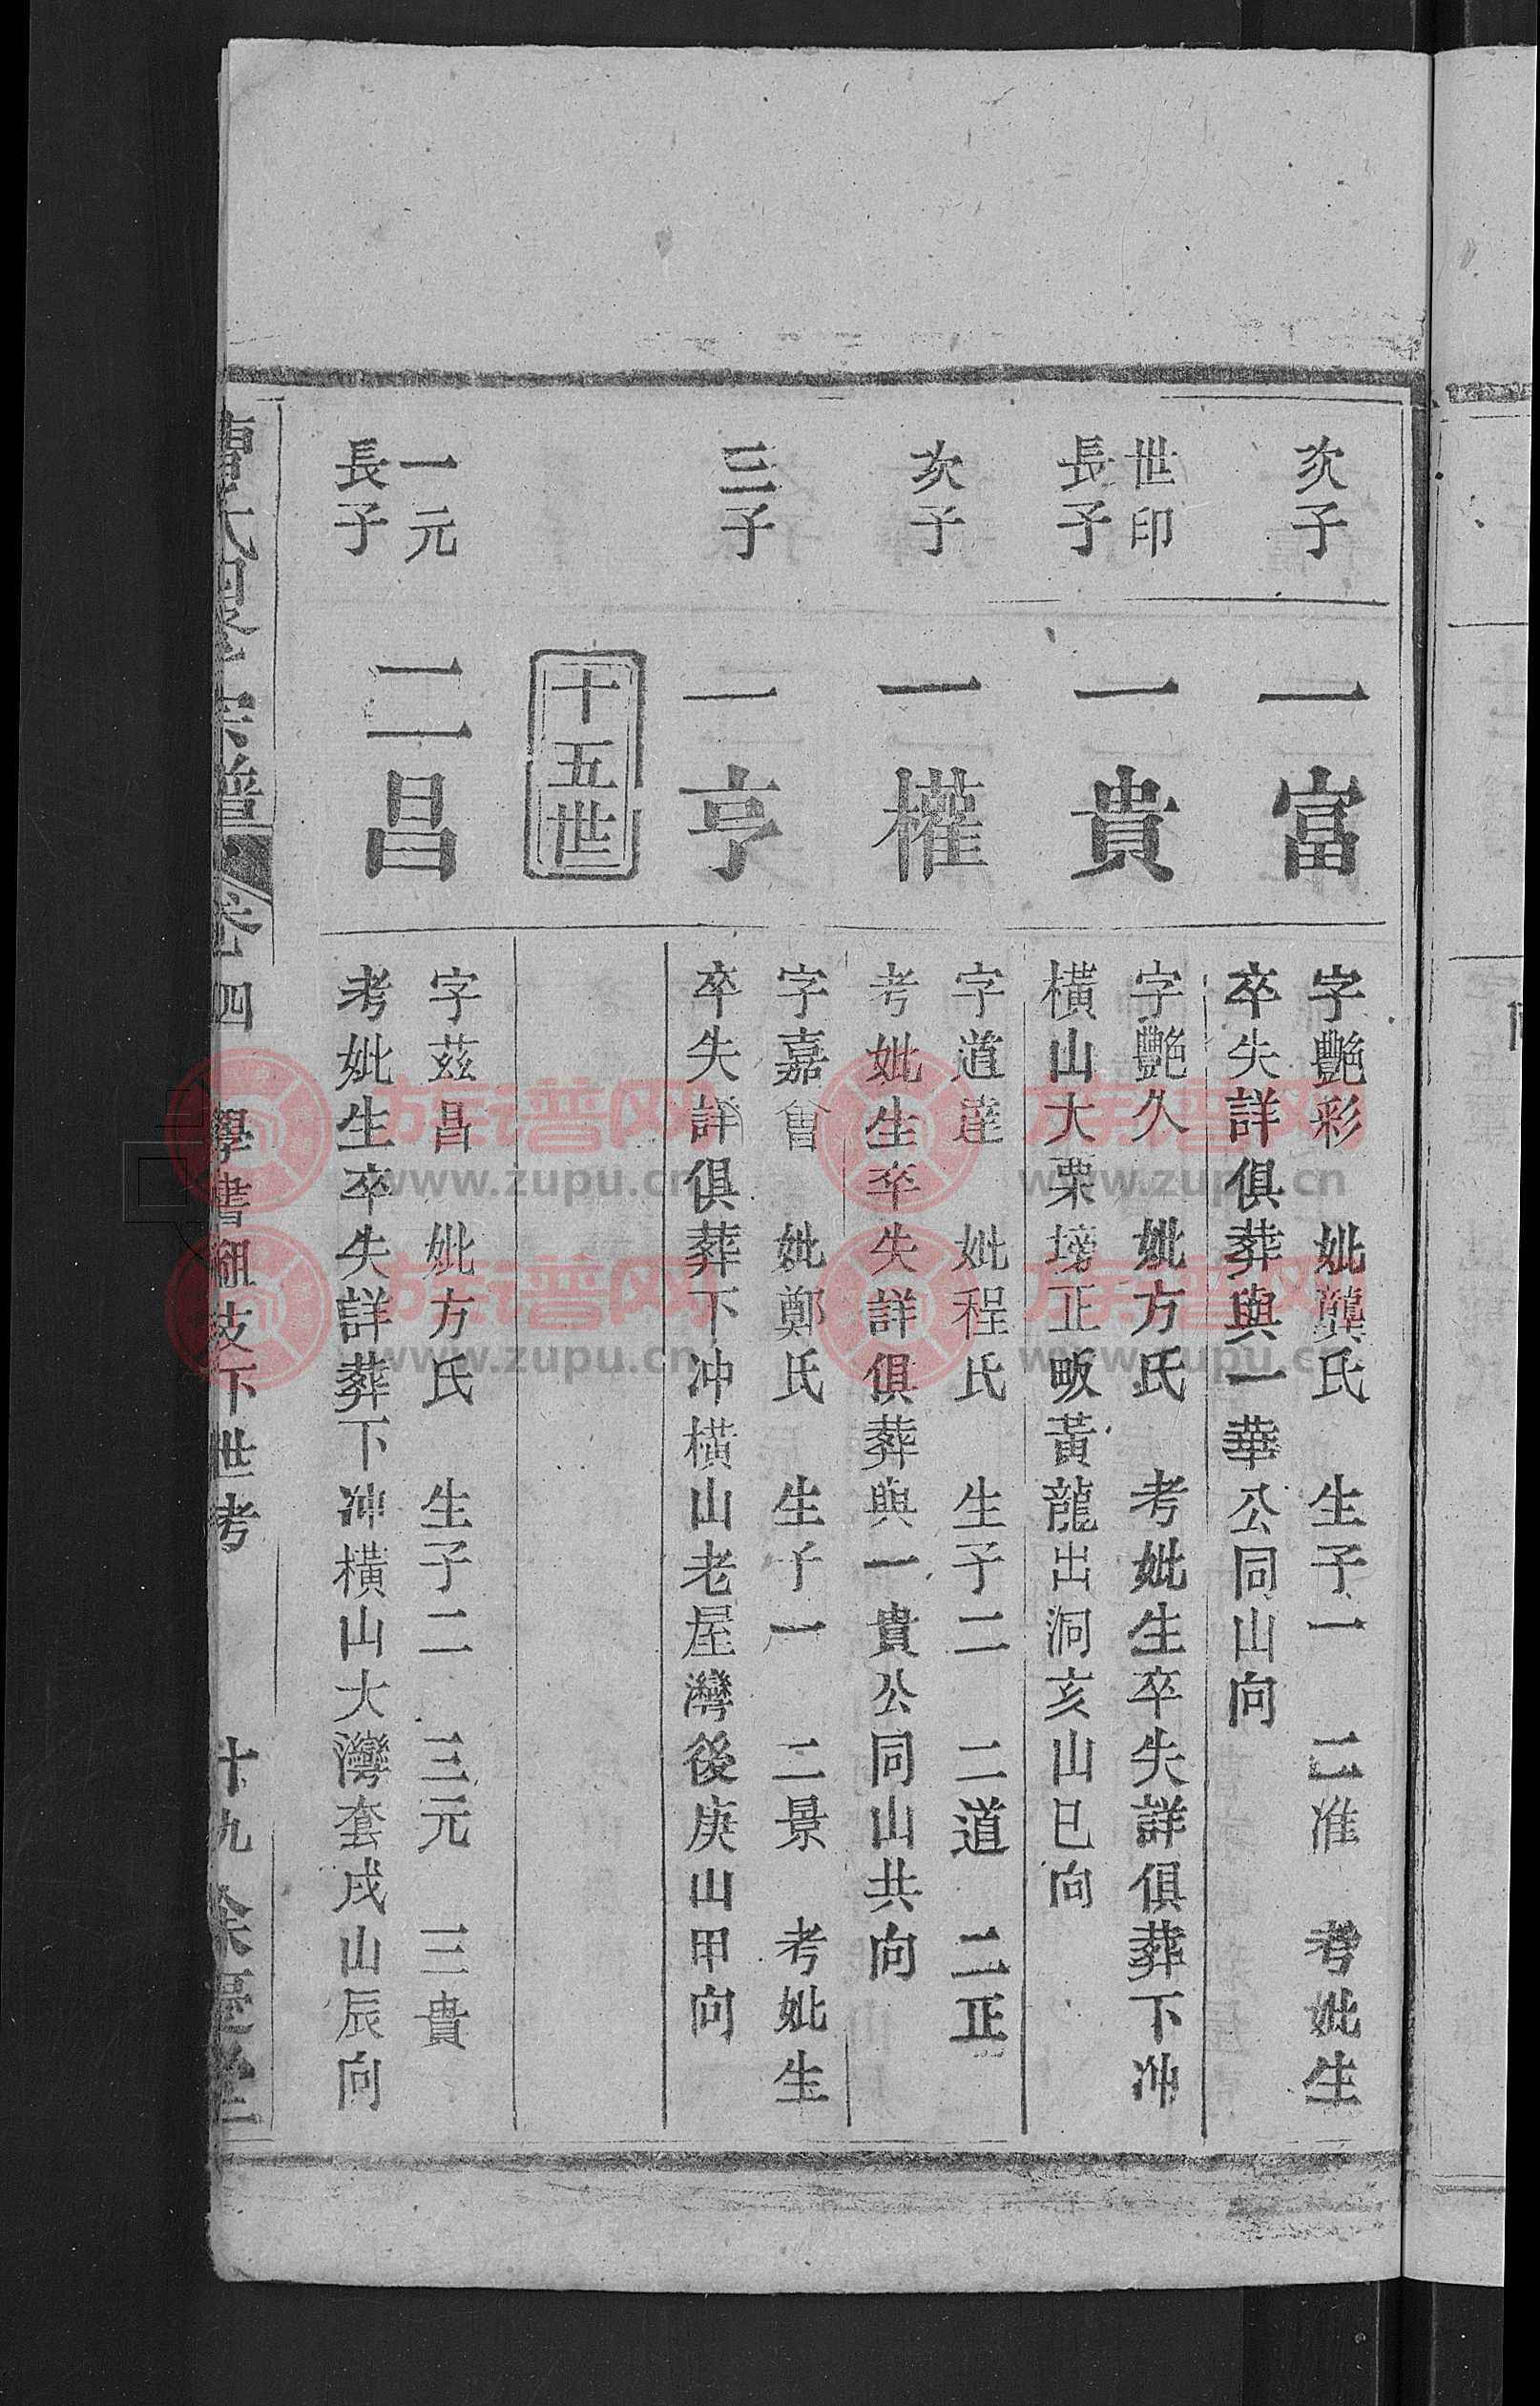 次子
一富
字艷彩 妣龔氏 生子一 二准 考妣生
卒失詳俱葬與一華公同山向
世印
長子
一貴
字艷久 妣方氏 考妣生卒失詳俱葬下冲
橫山大栗塝正畈黃龍出洞亥山巳向
次子
一權
字道達 妣程氏 生子二 二道 二正
考妣生卒失詳俱葬與一貴公同山共向
三子
一亨
字嘉會 妣鄭氏 生子一 二景 考妣生
卒失詳俱葬下冲橫山老屋灣後庚山甲向
十五世
一元
長子
二昌
字茲昌 妣方氏 生子二 三元 三貴
考妣生卒失詳葬下冲橫山大灣套戌山辰向
曹氏 宗譜 卷四 學書 支下世考 十九 堂
族谱网
www.zupu.cn
族谱网
www.zupu.cn
族谱网
www.zupu.cn
族谱网
www.zupu.cn